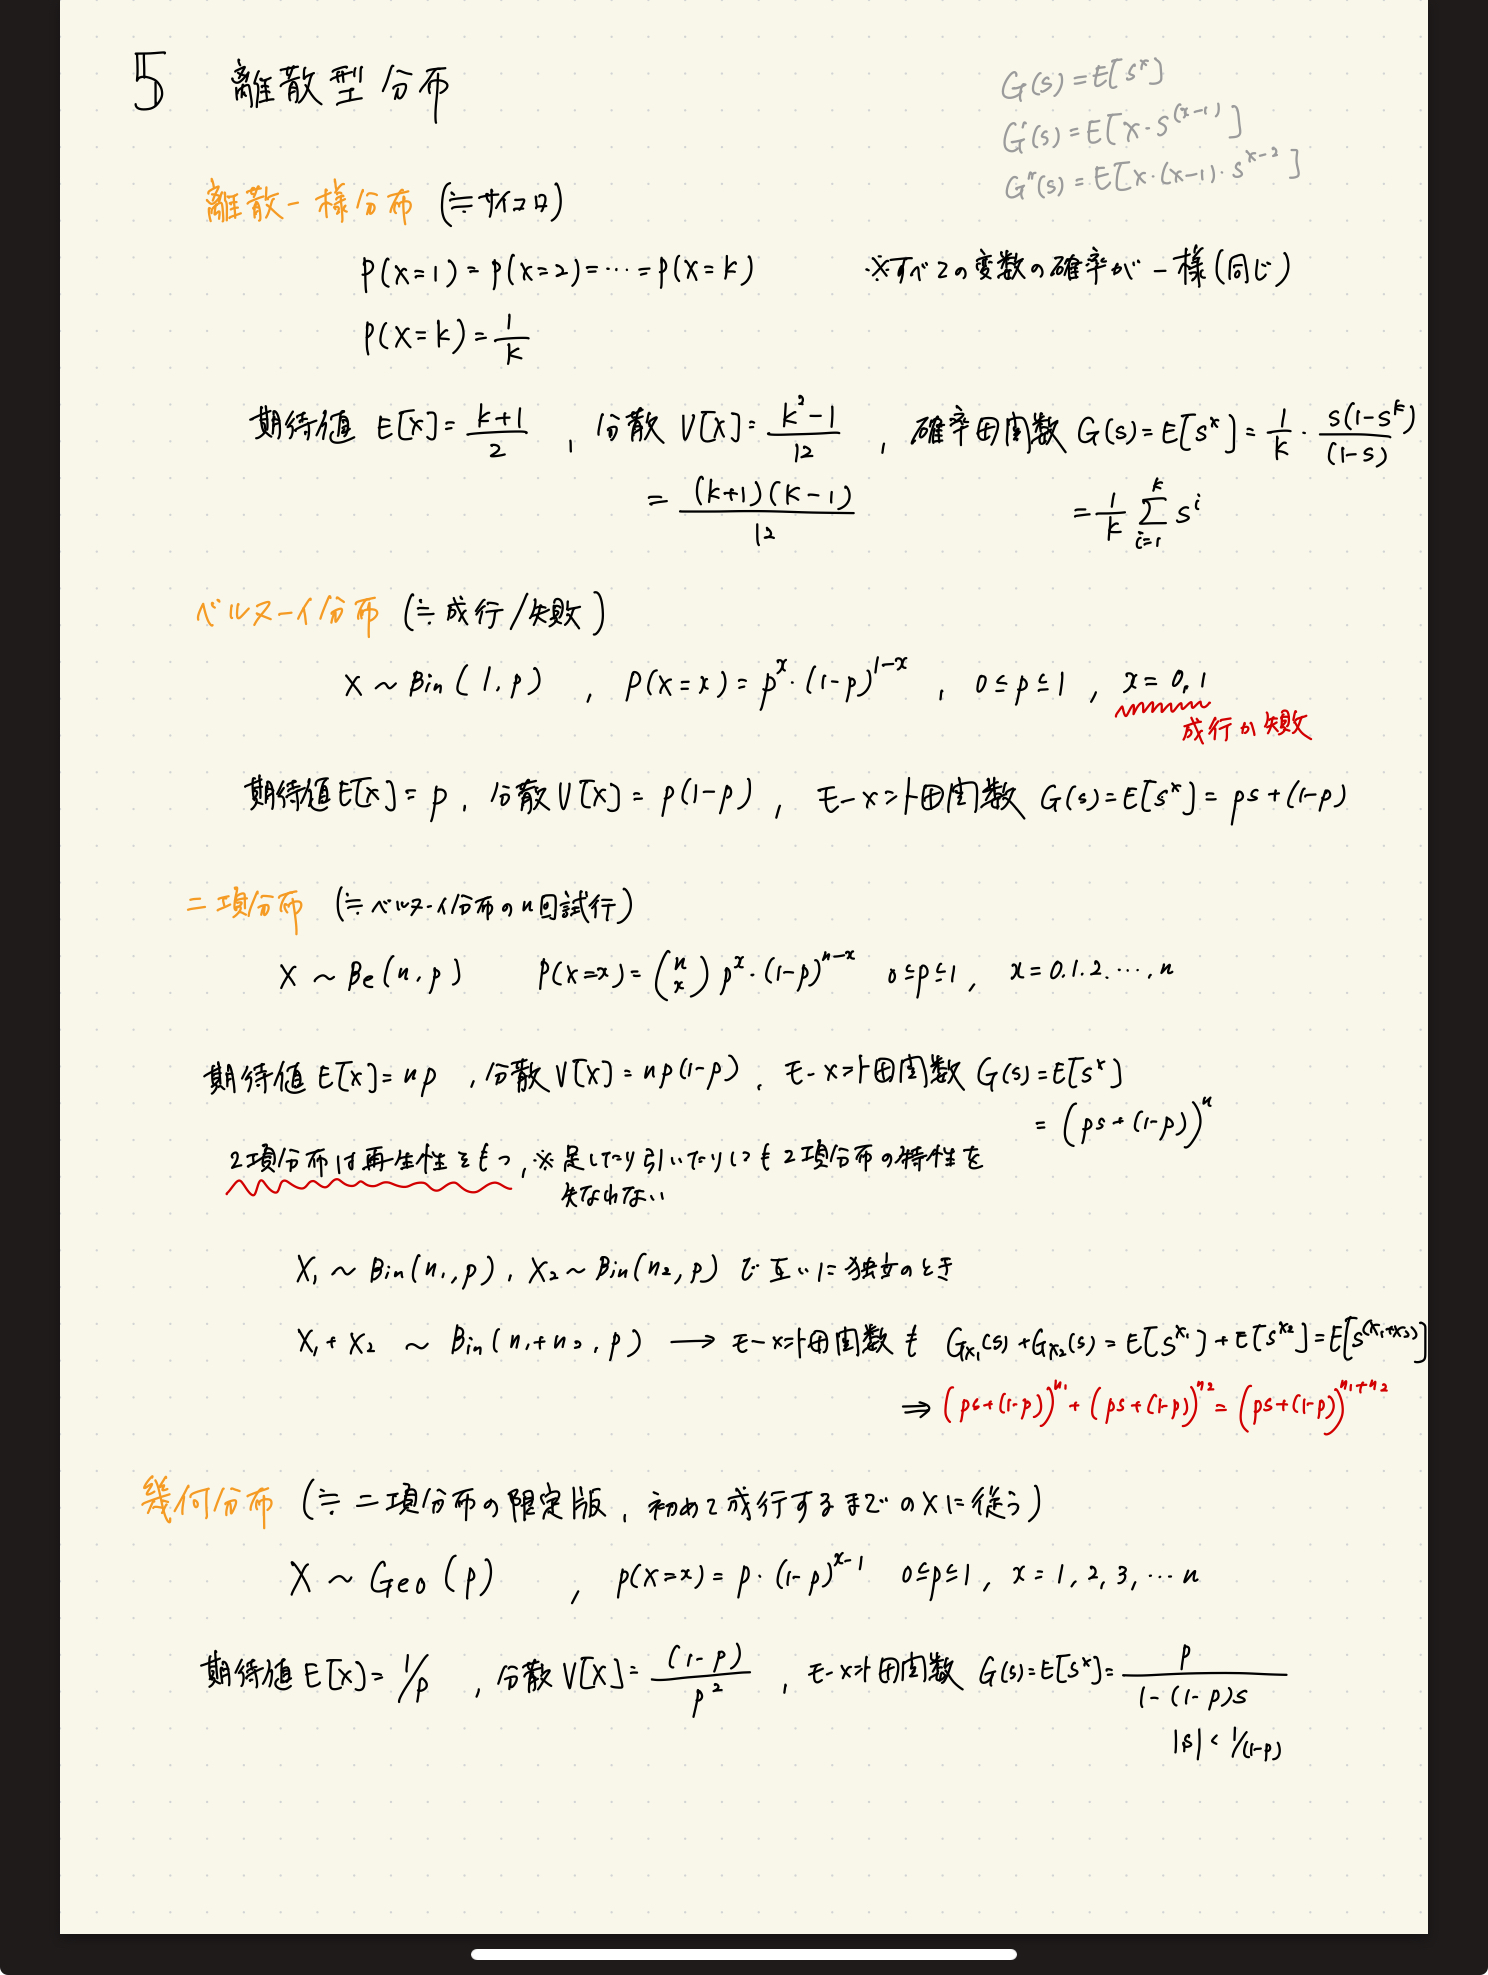 5 離散型分布
G(s) = E[s^x]
G'(s) = E[x・s^(x-1)]
G''(s) = E[x・(x-1)・s^x-2]
離散一様分布 (≒サイコロ)
P(X=1) = P(X=2) = … = P(X=k) ※すべての変数の確率が一様(同じ)
P(X=k) = 1/k
期待値 E[X] = k+1/2 , 分散 V[X] = k²-1/12 , 確率母関数 G(s) = E[s^x] = 1/k ・ s(1-s^k)/(1-s)
= (k+1)(k-1)/12 = 1/k Σ_{i=1}^{k} s^i
ベルヌーイ分布 (≒ 成行/失敗)
X ~ Bin(1, p) , P(X=x) = p^x・(1-p)^1-x , 0≦p≦1 , x=0,1
成行か失敗
期待値E[X] = p , 分散V[X] = p(1-p) , モーメント母関数 G(s) = E[s^x] = ps+(1-p)
二項分布 (≒ベルヌーイ分布のn回試行)
X ~ Be(n, p) P(X=x) = (n x) p^x・(1-p)^n-x 0≦p≦1, x=0.1.2.…,n
期待値 E[X] = np , 分散V[X] = np(1-p) , モーメント母関数 G(s) = E[s^x]
= (ps+(1-p))^n
2項分布は再生性をもつ, ※足したり引いたりしても2項分布の特性を
失なわない
X₁ ~ Bin(n₁, p), X₂ ~ Bin(n₂, p) で互いに独立のとき
X₁+X₂ ~ Bin(n₁+n₂, p) → モーメント母関数も G_X₁(s)+G_X₂(s) = E[s^X₁]+E[s^X₂] = E[s^(X₁+X₂)]
⇒ (ps+(1-p))^n₁ + (ps+(1-p))^n₂ = (ps+(1-p))^n₁+n₂
幾何分布 (≒ 二項分布の限定版, 初めて成行するまでのXに従う)
X ~ Geo(p) , P(X=x) = p・(1-p)^x-1 0≦p≦1, x=1,2,3,…n
期待値 E[X] = 1/p , 分散 V[X] = (1-p)/p² , モーメント母関数 G(s) = E[s^x] = p/1-(1-p)s
|s| < 1/(1-p)